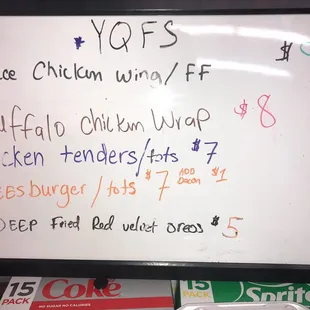 * YQFS
ce Chicken Wing/FF $
uffalo Chicken Wrap $8
cken tenders/tots $7
EESburger/tots $7 ADD Bacon $1
DEEP Fried Red velvet Oreos $5
15 PACK Coke
NO SUGAR NO CALORIES
15 PACK Sprite